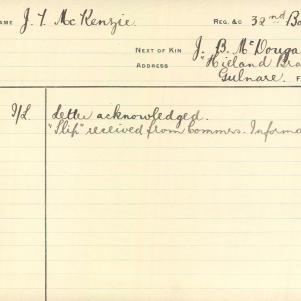 NAME J. T. McKenzie. REG. &C 32nd Ba
NEXT OF KIN J. B. McDouga
ADDRESS "Hieland Bra
Gulnare. F
I/L Letter acknowledged.
"Slip" received from Commrs. Informa